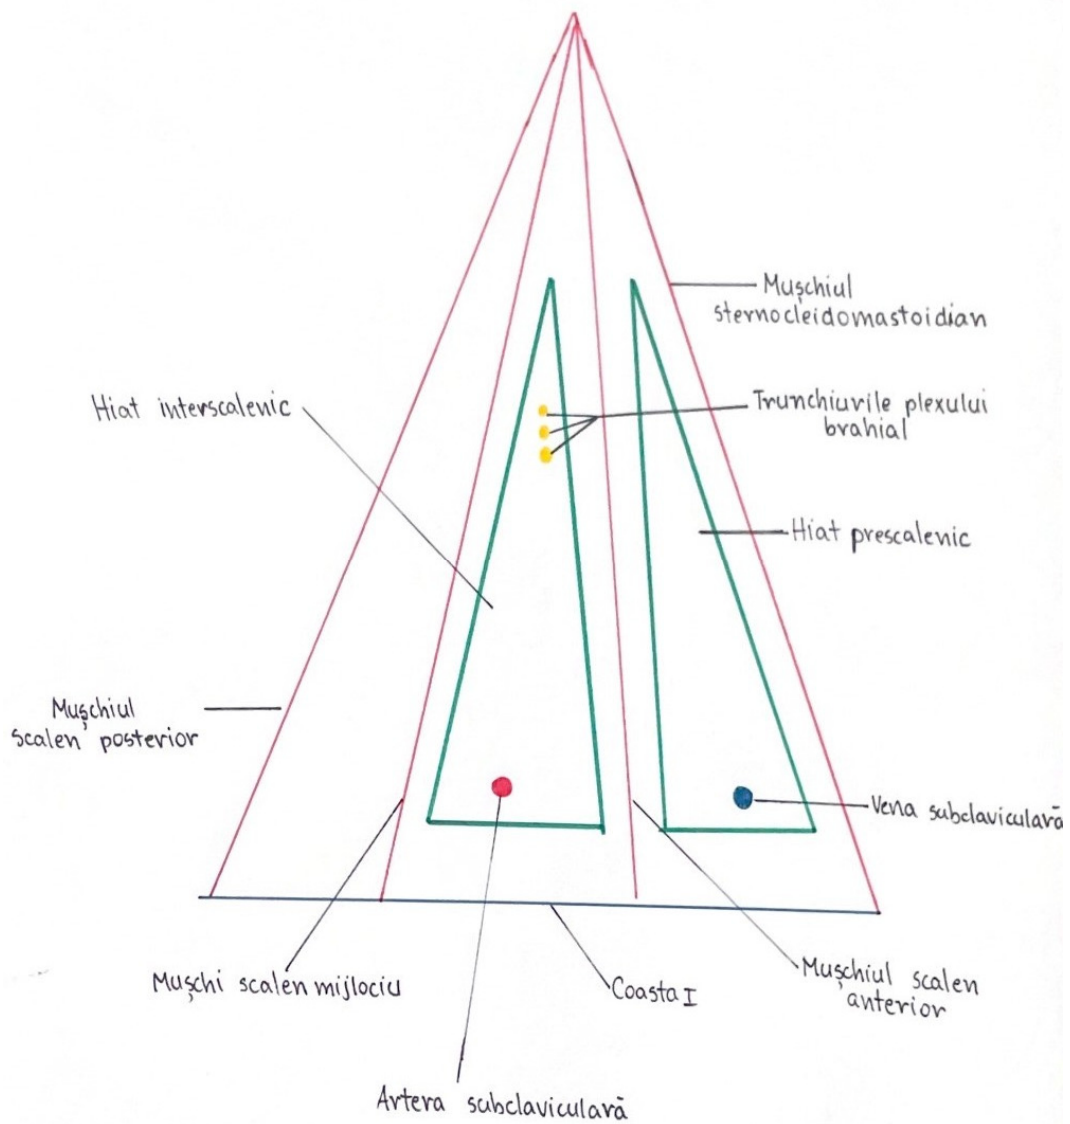 Mușchiul
sternocleidomastoidian
Hiat interscalenic
Trunchiurile plexului
brahial
Hiat prescalenic
Mușchiul
scalen posterior
Vena subclaviculară
Mușchi scalen mijlociu
Coasta I
Mușchiul scalen
anterior
Artera subclaviculară